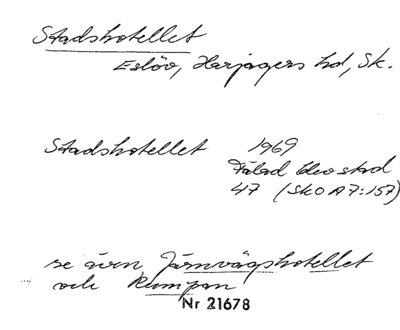 Stadshotellet
Eslöv, Harjagers hd, Sk.
Stadshotellet 1969
Fälad Elevstad
47 (SkO A7:157)
se även Järnvägshotellet
och Rumpan
Nr 21678